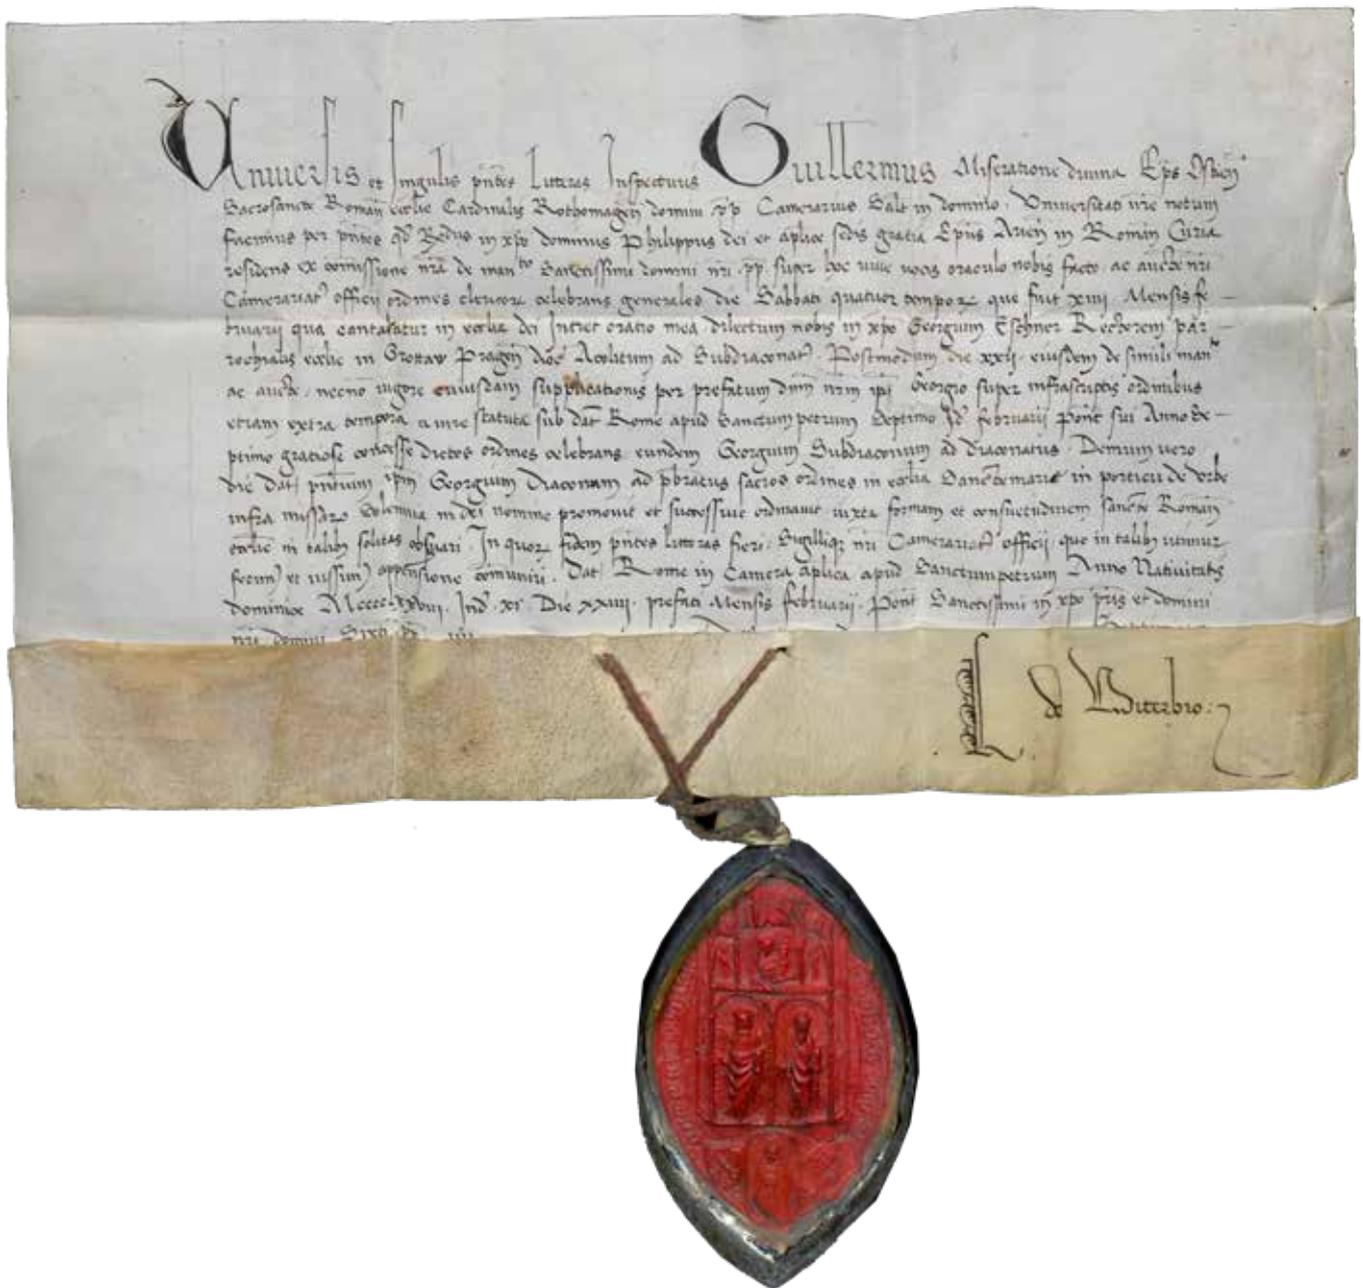 Universis et singulis pntes litteras Inspecturis Guillermus Miseratione divina Eps Ostien
Sacrosancte Roman ecclie Cardinalis Rothomagen domini pp Camerarius Salt in domino. Universitati vre notum
facimus per pntes qd Rdus in xpo dominus Philippus dei et aplice sedis gratia Epus Arien in Roman Curia
residens ex comissione nra de manto Sanctissimi domini nri pp super hoc vive vocis oraculo nobis facto ac aucte nri
Camerariatus officii ordines clericor celebrans generales die Sabbati quatuor tempor que fuit xiiii Mensis fe-
bruarii qua cantabatur in ecclia dei Intret oratio mea dilectum nobis in xpo Georgium Eschner Rectorem par-
rochialis ecclie in Grottaw Pragen dioc Acolitum ad Subdiaconatus. Postmodum die xxii eiusdem de simili manto
ac aucte necno vigore cuiusdam supplicationis per prefatum dnm nrm ipi Georgio super infrascriptis ordinibus
etiam extra tempora a iure statuta sub dat Rome apud Sanctumpetrum Septimo Id februarii Pont sui Anno Se-
ptimo gratiose concesse dictos ordines celebrans eundem Georgium Subdiaconum ad diaconatus. Demum vero
die dat pntium ipm Georgium Diaconum ad pbratus sacros ordines in ecclia Sanctemarie in porticu de Urbe
infra missar Solemnia in dei nomine promovit et successive ordinavit iuxta formam et consuetudinem sancte Roman
ecclie in talibus solitas observari. In quor fidem pntes litteras fieri Sigillique nri Camerariatus officii quo in talibus utimur
fecimus et iussimus appensione comuniri. Dat Rome in Camera aplica apud Sanctumpetrum Anno Nativitatis
dominice Mcccclxxviii. Ind xi Die xxiiii prefati Mensis februarii. Pont Sanctissimi in xpo pris et domini
nri domini Sixti
L de Viterbio